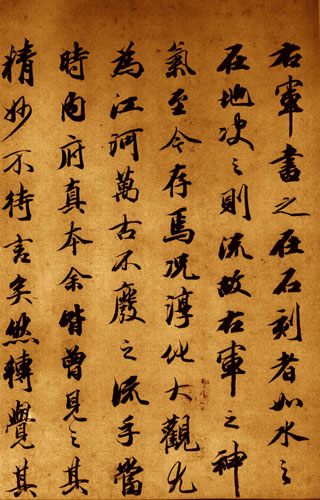 右軍書之在石刻者如水之
在地决之則流故右軍之神
氣至今存焉况淳化大觀尤
為江河萬古不廢之流乎當
時内府真本余皆曾見之其
精妙不待言矣然轉覺其